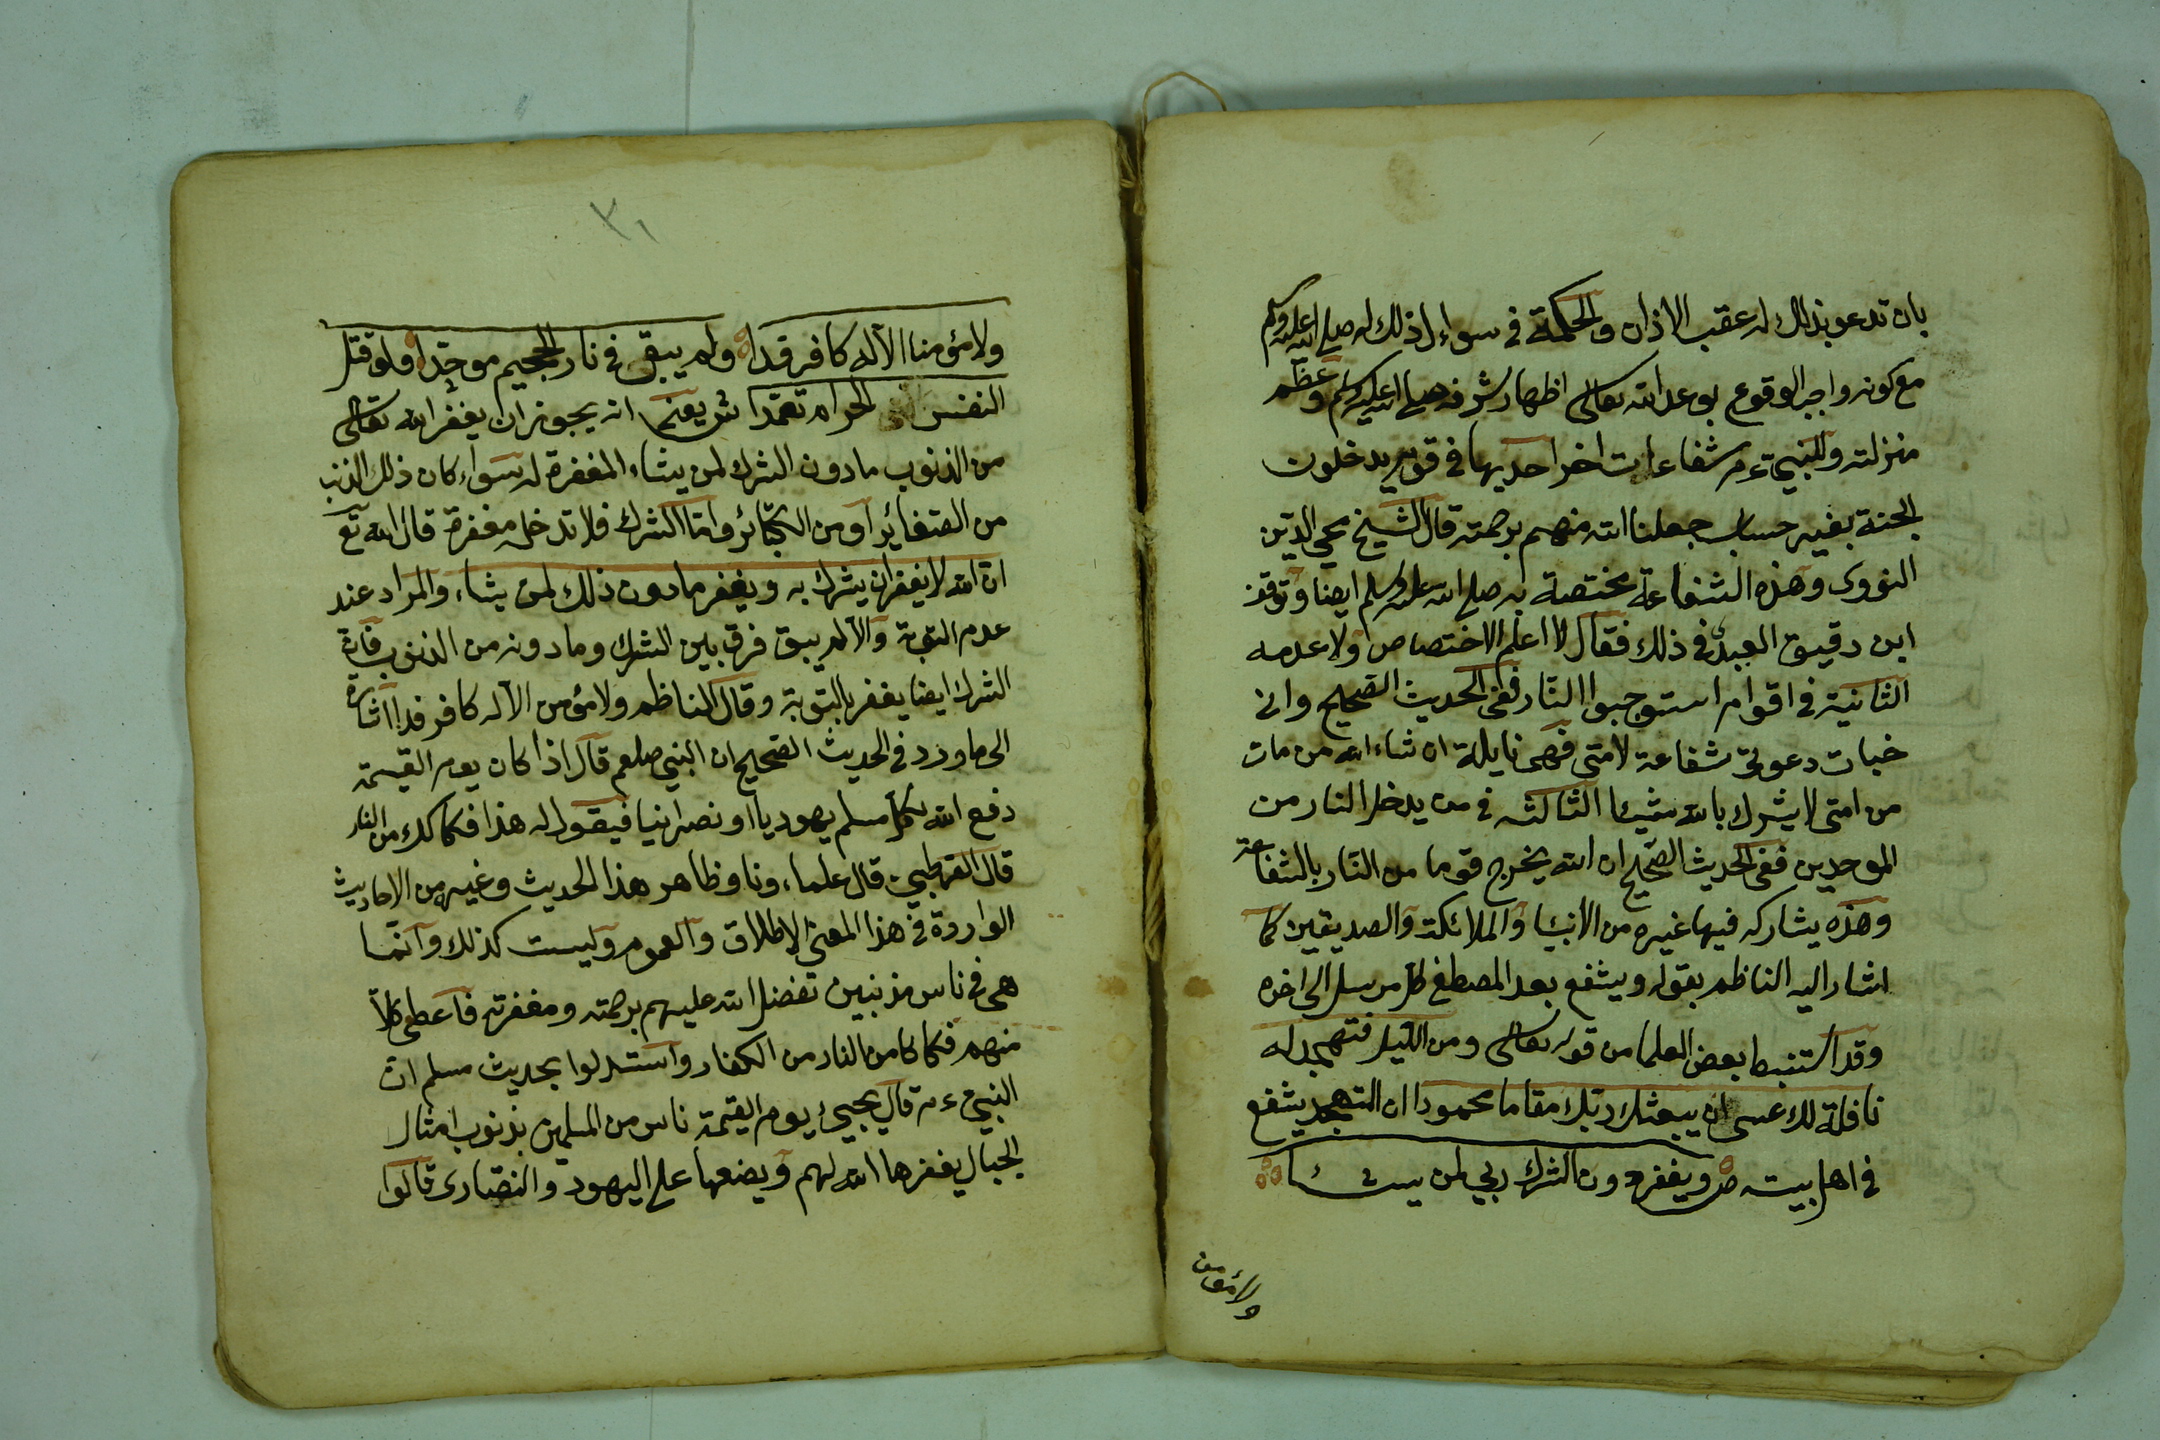 بان تدعو بذلك له عقب الاذان والحكمة في سواء ل ذلك له صلى الله عليه وسلم
مع كونه واجب الوقوع بوعد الله تعالى اظهار شرفه صلى الله عليه وسلم وعظم
منزلته وللنبي ءم شفاعات اخر احديها في قوم يدخلون
الجنة بغير حساب جعلنا الله منهم برحمته قال الشيخ محي الدين
النووى وهذه الشفاعة مختصة به صلى الله عليه وسلم ايضا وتوقف
ابن دقيق العيد في ذلك فقال لا اعلم الاختصاص ولا عدمه
الثانية في اقوام استوجبوا النار ففى الحديث الصحيح واني
خبات دعوتى شفاعة لامتى فهى نايلة ان شاء الله من مات
من امتى لا يشرك بالله شيئا الثالثه في من يدخل النار من
الموحدين ففى الحديث الصحيح ان الله يخرج قوما من النار بالشفاعة
وهذه يشاركه فيها غيره من الانبيا والملائكة والصديقين كما
اشار اليه الناظم بقوله ويشفع بعد المصطفى كل مرسل الى اخره
وقد استنبط بعض العلما من قوله تعالى ومن الليل فتهجد به
نافلة لك عسى ان يبعثك ربك مقاما محمودا ان التهجد يشفع
في اهل بيته ص ويغفر دون الشرك ربي لمن يشا
ولا مؤمن
٣١
ولا مؤمنا الا له كافر فدا ولم يبق في نار الجحيم موحدا ولو قتل
النفس الحرام تعمدا ش يعنى انه يجوز ان يغفر الله تعالى
من الذنوب ما دون الشرك لمن يشاء المغفرة له سواء كان ذلك الذنب
من الصغائر او من الكبائر واما الشرك فلا تدخله مغفرة قال الله تع
ان الله لا يغفر ان يشرك به ويغفر ما دون ذلك لمن يشاء والمراد عند
عدم التوبة والا لم يبق فرق بين الشرك وما دونه من الذنوب فان
الشرك ايضا يغفر بالتوبة وقال الناظم ولا مؤمن الا له كافر فدا اشارة
الى ما ورد في الحديث الصحيح ان النبي صلعم قال اذا كان يوم القيمة
دفع الله لكل مسلم يهوديا او نصرانيا فيقول له هذا فكاكك من النار
قال القرطبي قال علماءونا وظاهر هذا الحديث وغيره من الاحاديث
الواردة في هذا المعنى الاطلاق والعموم وليست كذلك وانما
هى في ناس مذنبين تفضل الله عليهم برحمته ومغفرته فاعطى كلا
منهم فكاكا من النار من الكفار واستدلوا بحديث مسلم ان
النبي ءم قال يجيئ يوم القيمة ناس من المسلمين بذنوب امثال
الجبال يغفرها الله لهم ويضعها على اليهود والنصارى قالوا